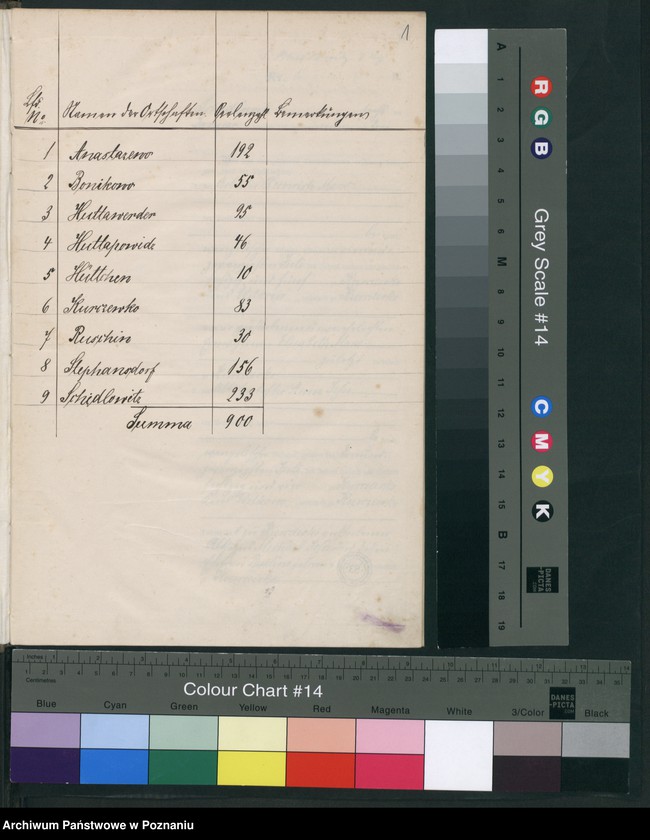 1
Lfd. No. Namen der Ortschaften. Seelenzahl Bemerkungen
1 Anastazewo 192
2 Bonikowo 55
3 Hutlawerder 95
4 Hutlapowide 46
5 Hüttchen 10
6 Kurczewko 83
7 Ruschin 30
8 Stephansdorf 156
9 Schidlowitz 233
Summa 900
A 1 2 3 4 5 6 M 8 9 10 11 12 13 14 15 B 17 18 19
R G B
Grey Scale #14
C M Y K
DANES-PICTA.COM
Inches 1 2 3 4 5 6 7 8 9 10 11 12 13 14
Centimetres
Colour Chart #14
DANES-PICTA.COM
Blue Cyan Green Yellow Red Magenta White 3/Color Black
Archiwum Państwowe w Poznaniu